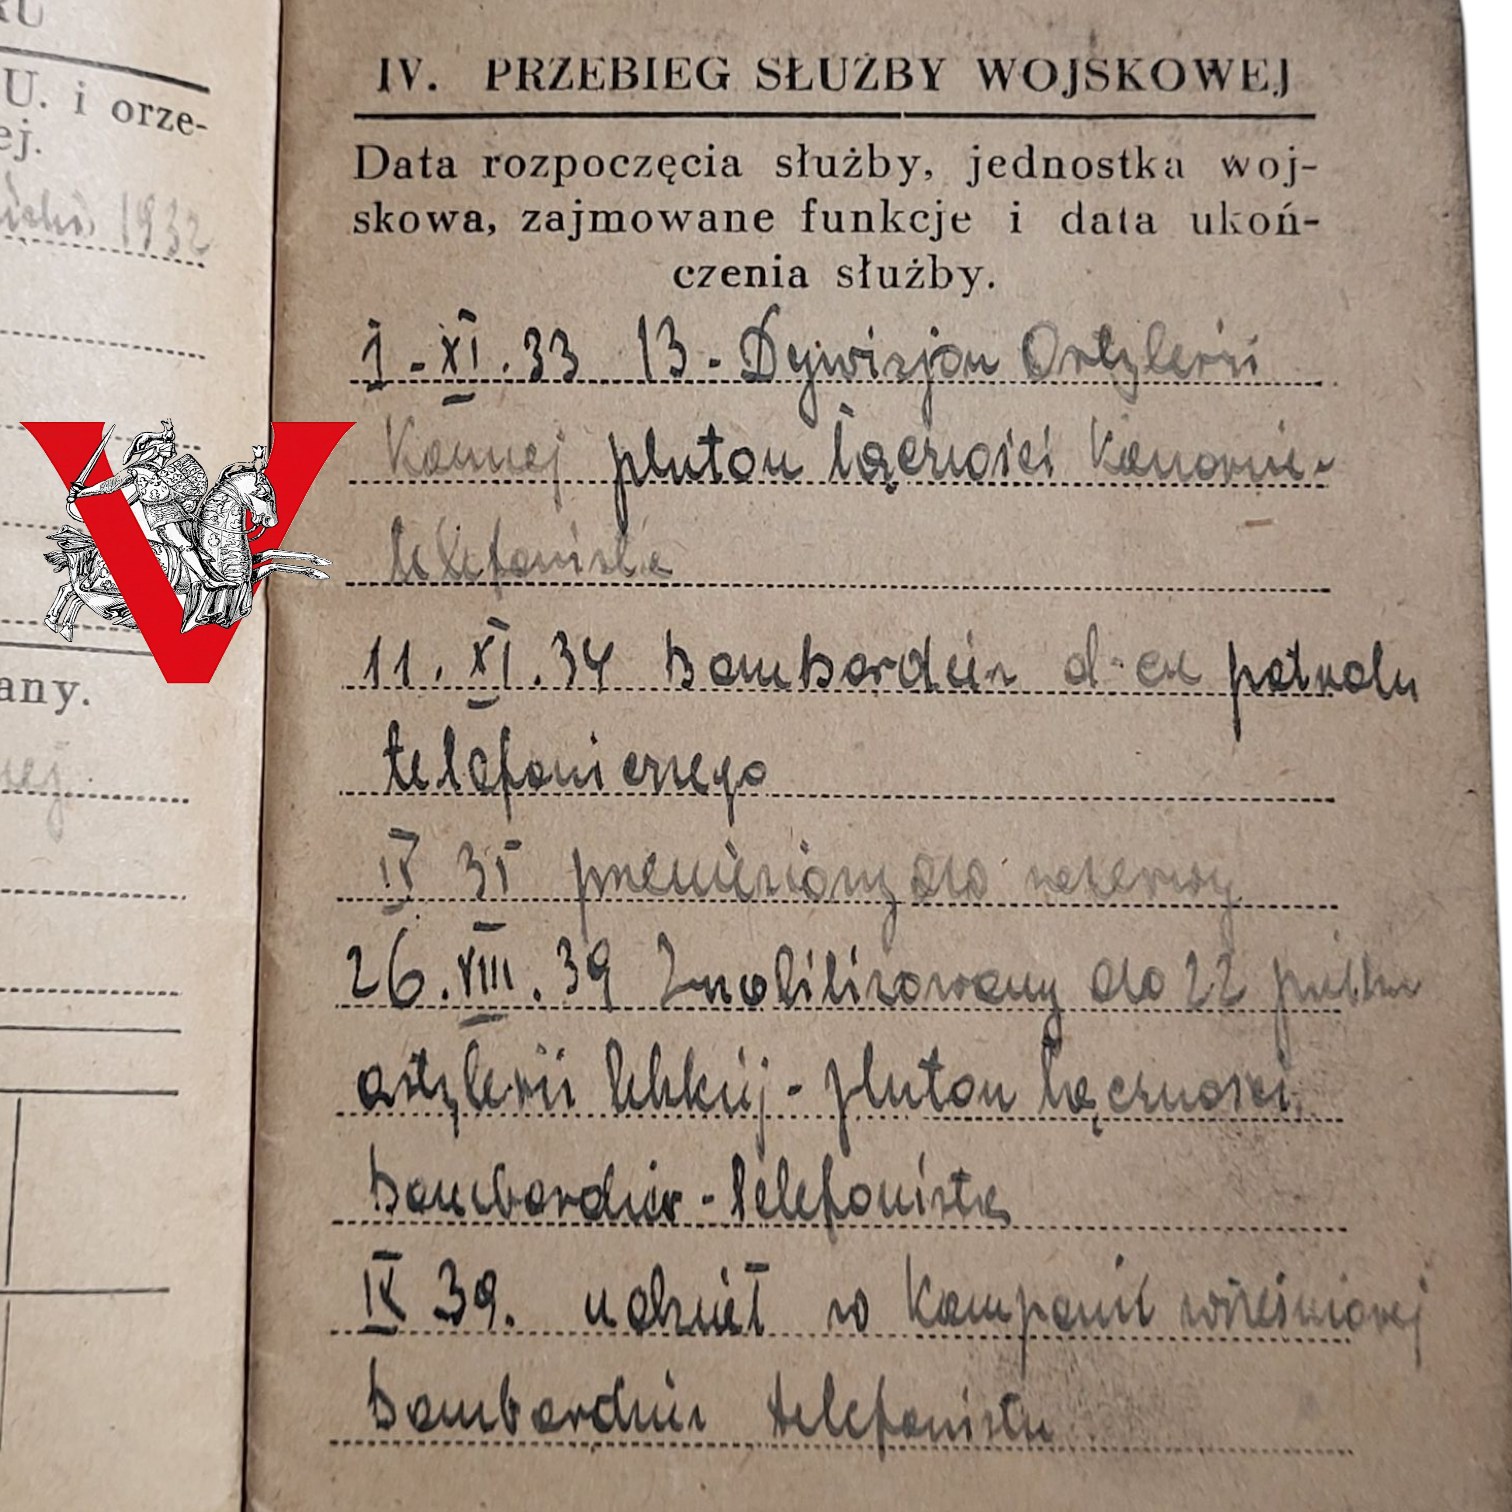 RU
U. i orze-
ej.
1932
any.
nej
IV. PRZEBIEG SŁUŻBY WOJSKOWEJ
Data rozpoczęcia służby, jednostka woj-
skowa, zajmowane funkcje i data ukoń-
czenia służby.
1-XI.33 13-Dywizjon Artylerii
Konnej pluton łączności Kanonier
telefonista
11.XI.34 bombardier d-ca patrolu
telefonicznego
IX 35 przeniesiony do rezerwy
26.VIII.39 Zmobilizowany do 22 pułku
artylerii lekkiej - pluton łączności
bombardier - telefonista
IX 39. udział w Kampanii wrześniowej
bombardier telefonista
V